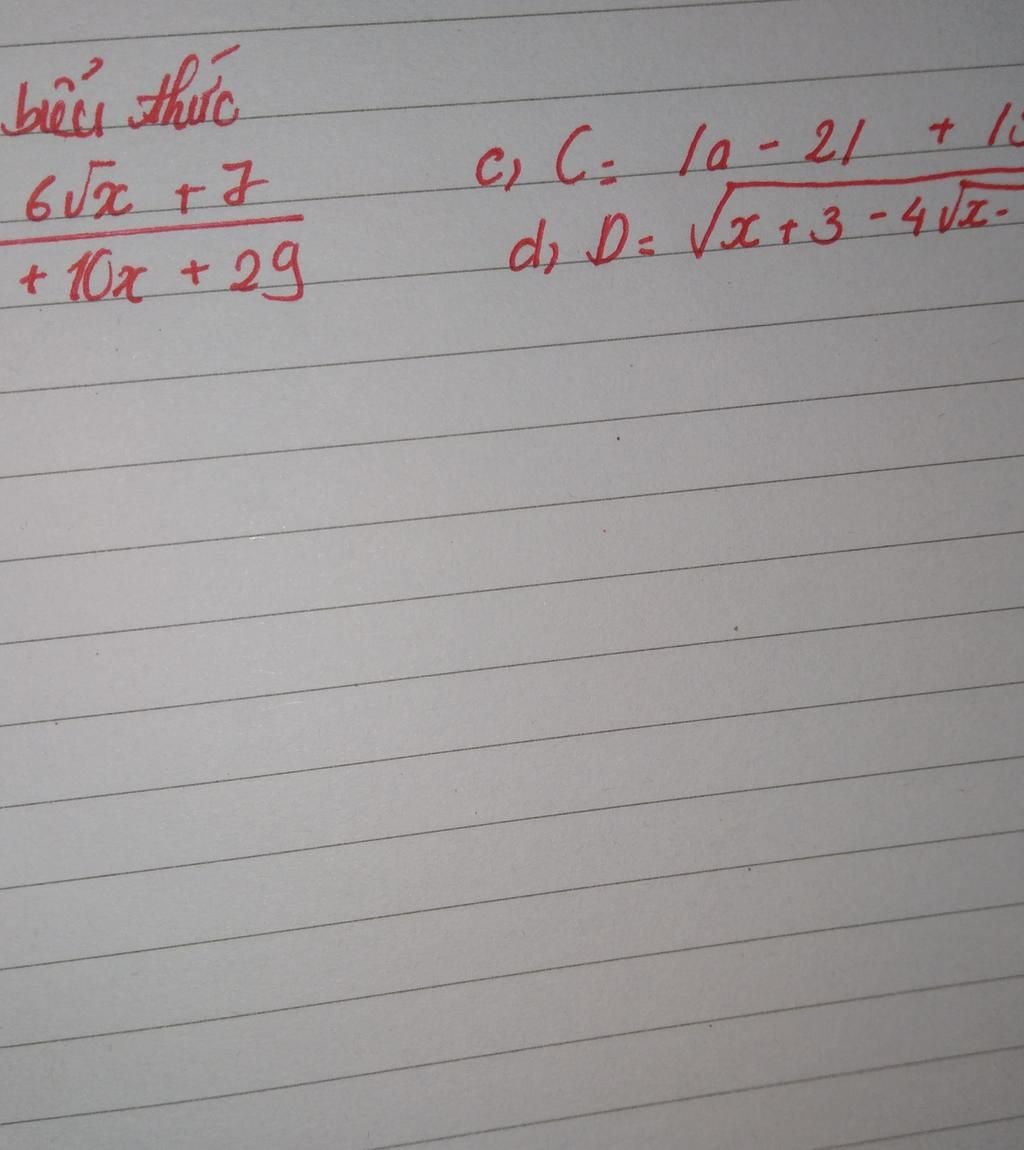 biểu thức
6√x + 7
+ 10x + 29
c, C = |a - 2| + |
d, D = √x + 3 - 4√x -